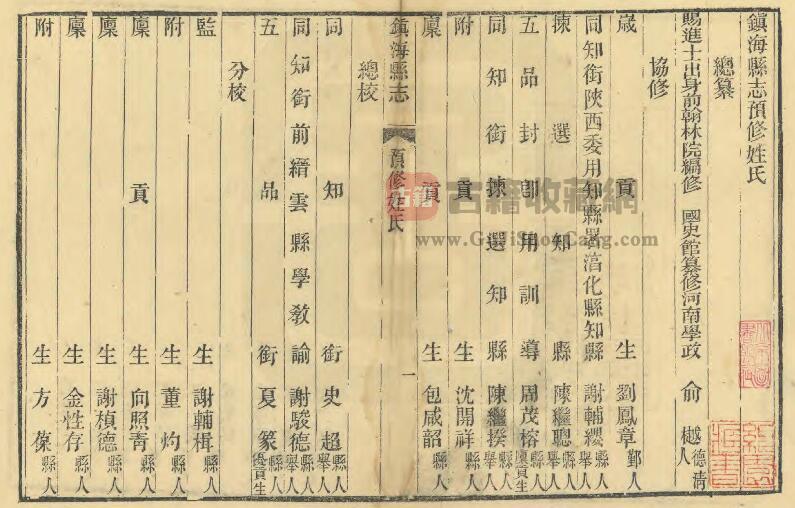 鎮海縣志預修姓氏
總纂
賜進士出身前翰林院編修 國史館纂修河南學政 俞樾 德清人
協修
歲貢生劉鳳章 鄞人
同知銜陝西委用知縣署淯化縣知縣謝輔纓 縣人舉人
揀選知縣陳繼聰 縣人舉人
五品封卽用訓導周茂榕 縣人優貢生
同知銜揀選知縣陳繼揆 縣人舉人
附貢生沈開祥 縣人
廩貢生包咸韶 縣人
鎮海縣志 預修姓氏 一
總校
同知銜史超 縣人舉人
同知銜前縉雲縣學教諭謝駿德 縣人舉人
五品銜夏篆 縣人優貢生
分校
監生謝輔楫 縣人
附生董灼 縣人
廩貢生向照青 縣人
廩生謝楨德 縣人
廩生金性存 縣人
附生方葆 縣人
古籍 古籍收藏網
www.GuJiShouCang.com